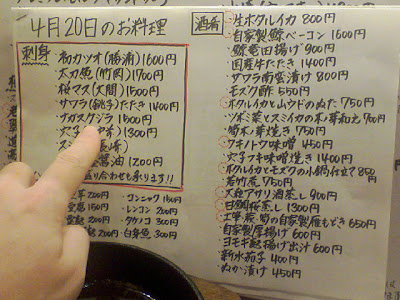 4月20日のお料理
刺身
初カツオ(勝浦)1600円
太刀魚(竹岡)1700円
桜マス(大間)1500円
サワラ(銚子)たたき1400円
ナガスクジラ1500円
穴子 1300円
醤油1200円
り合わせも承ります!!
200円
150円
200円
200円
ゴンニャク150円
レンコン200円
タケノコ300円
白身魚300円
酒肴
生ホタルイカ800円
自家製鯨ベーコン1600円
鯨竜田揚げ900円
国産牛たたき1400円
サワラ南蛮漬け800円
モズク酢550円
ホタルイカと山ウドのぬた750円
ツボ菜とスミイカの木ノ芽和え700円
筍木ノ芽焼き750円
ワキノトウ味噌450円
穴子フキ味噌焼き1400円
ホタルイカとモズクの小鍋仕立て850円
若竹煮750円
大粒アサリ酒蒸し900円
白魚桜蒸し1300円
自家製雁もどき650円
自家製厚揚げ600円
ヨモギ麩揚げ出汁600円
新水茄子400円
ぬか漬け450円